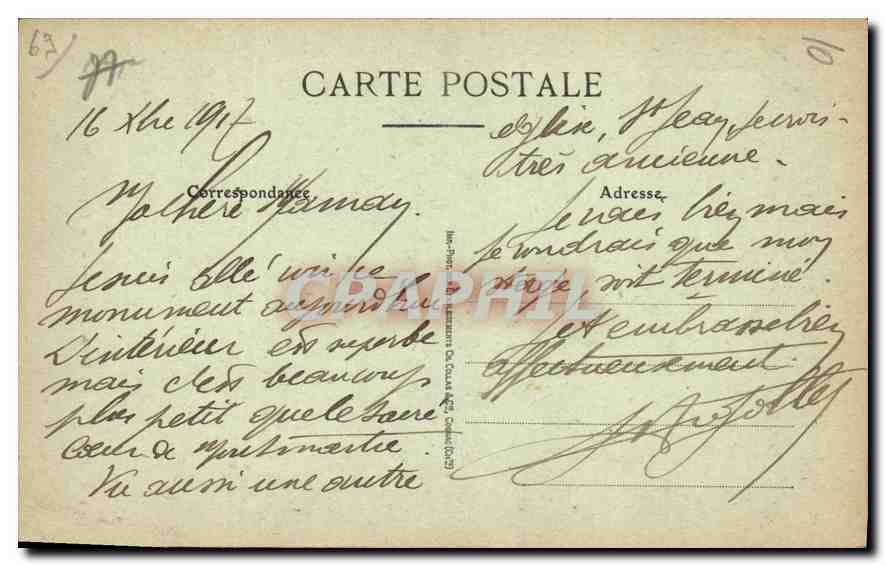 67
CARTE POSTALE
16 Xbre 1917
Correspondance
Ma chère Maman,
Je suis allé voir ce
monument aujourd'hui
L'intérieur est superbe
mais c'est beaucoup
plus petit que le Sacré
Coeur de Montmartre
Vu aussi une autre
eglise, St Jean, je crois
très ancienne.
Adresse
Je vais bien mais
je voudrais que mon
stage, soit terminé
Je t'embrasse bien
affectueusement
IMP.-PHOT. ETABLISSEMENTS CH. COLLAS & Cie, COGNAC (Chte)
CPAPHIL